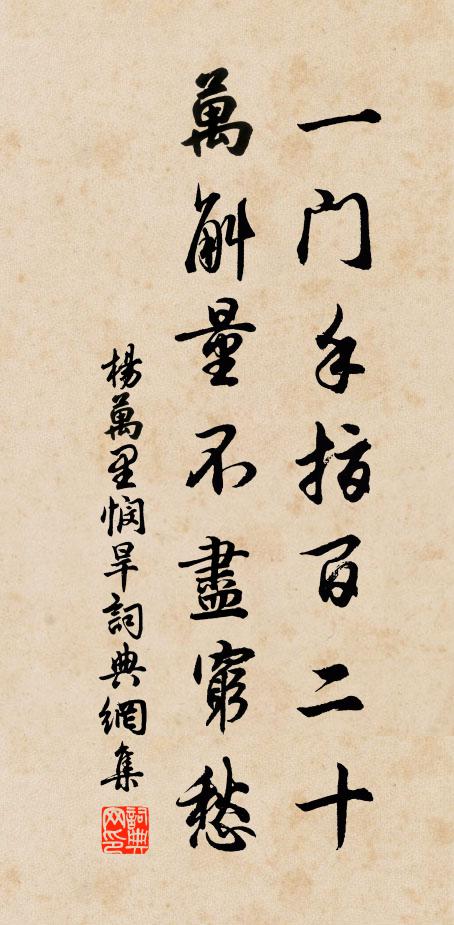 一門手指百二十
萬斛量不盡窮愁
楊萬里憫旱詞典網集
詞典網印